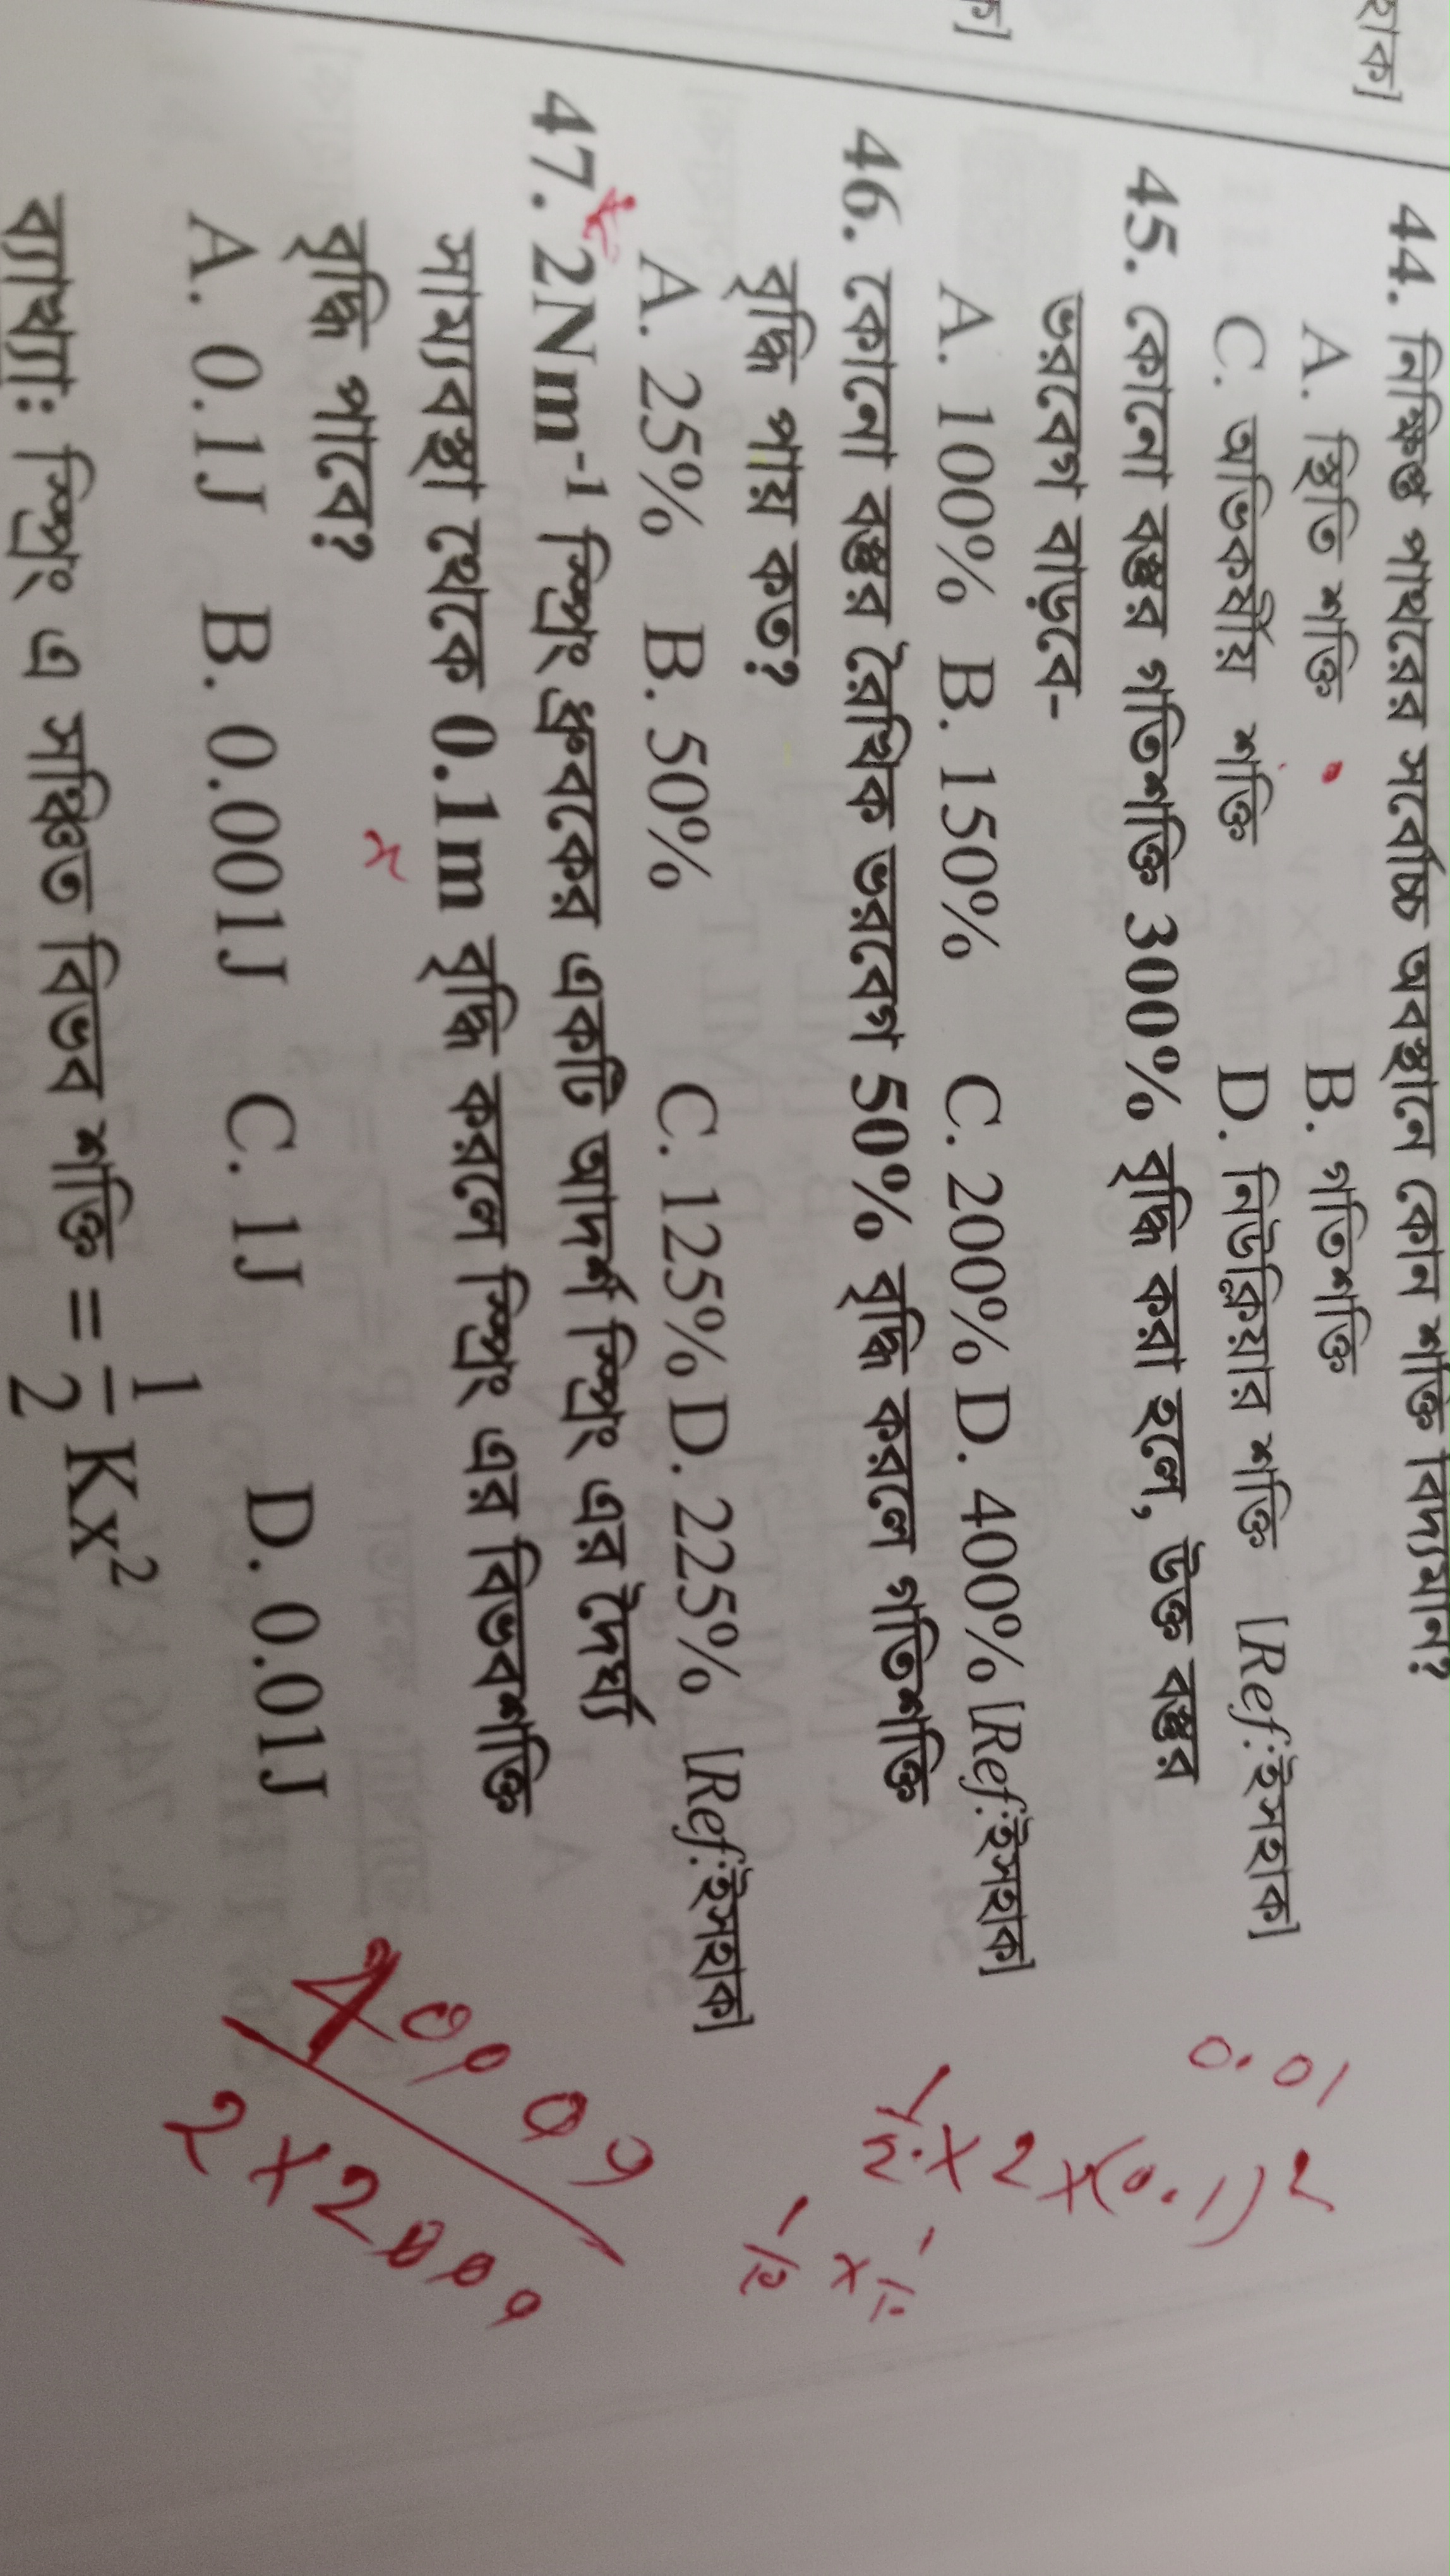 হাক]
ক]
44. নিক্ষিপ্ত পাথরের সর্বোচ্চ অবস্থানে কোন শক্তি বিদ্যমান?
A. স্থিতি শক্তি B. গতিশক্তি
C. অভিকর্ষীয় শক্তি D. নিউক্লিয়ার শক্তি [Ref:ইসহাক]
45. কোনো বস্তুর গতিশক্তি 300% বৃদ্ধি করা হলে, উক্ত বস্তুর
ভরবেগ বাড়বে-
A. 100% B. 150% C. 200% D. 400% [Ref:ইসহাক]
46. কোনো বস্তুর রৈখিক ভরবেগ 50% বৃদ্ধি করলে গতিশক্তি
বৃদ্ধি পায় কত?
A. 25% B. 50% C. 125% D. 225% [Ref:ইসহাক]
47. 2Nm⁻¹ স্প্রিং ধ্রুবকের একটি আদর্শ স্প্রিং এর দৈর্ঘ্য
সাম্যবস্থা থেকে 0.1m বৃদ্ধি করলে স্প্রিং এর বিভবশক্তি
x
বৃদ্ধি পাবে?
A. 0.1J B. 0.001J C. 1J D. 0.01J
ব্যাখ্যা: স্প্রিং এ সঞ্চিত বিভব শক্তি = 1/2 Kx²
0.01
1/2 × 2 × (0.1)²